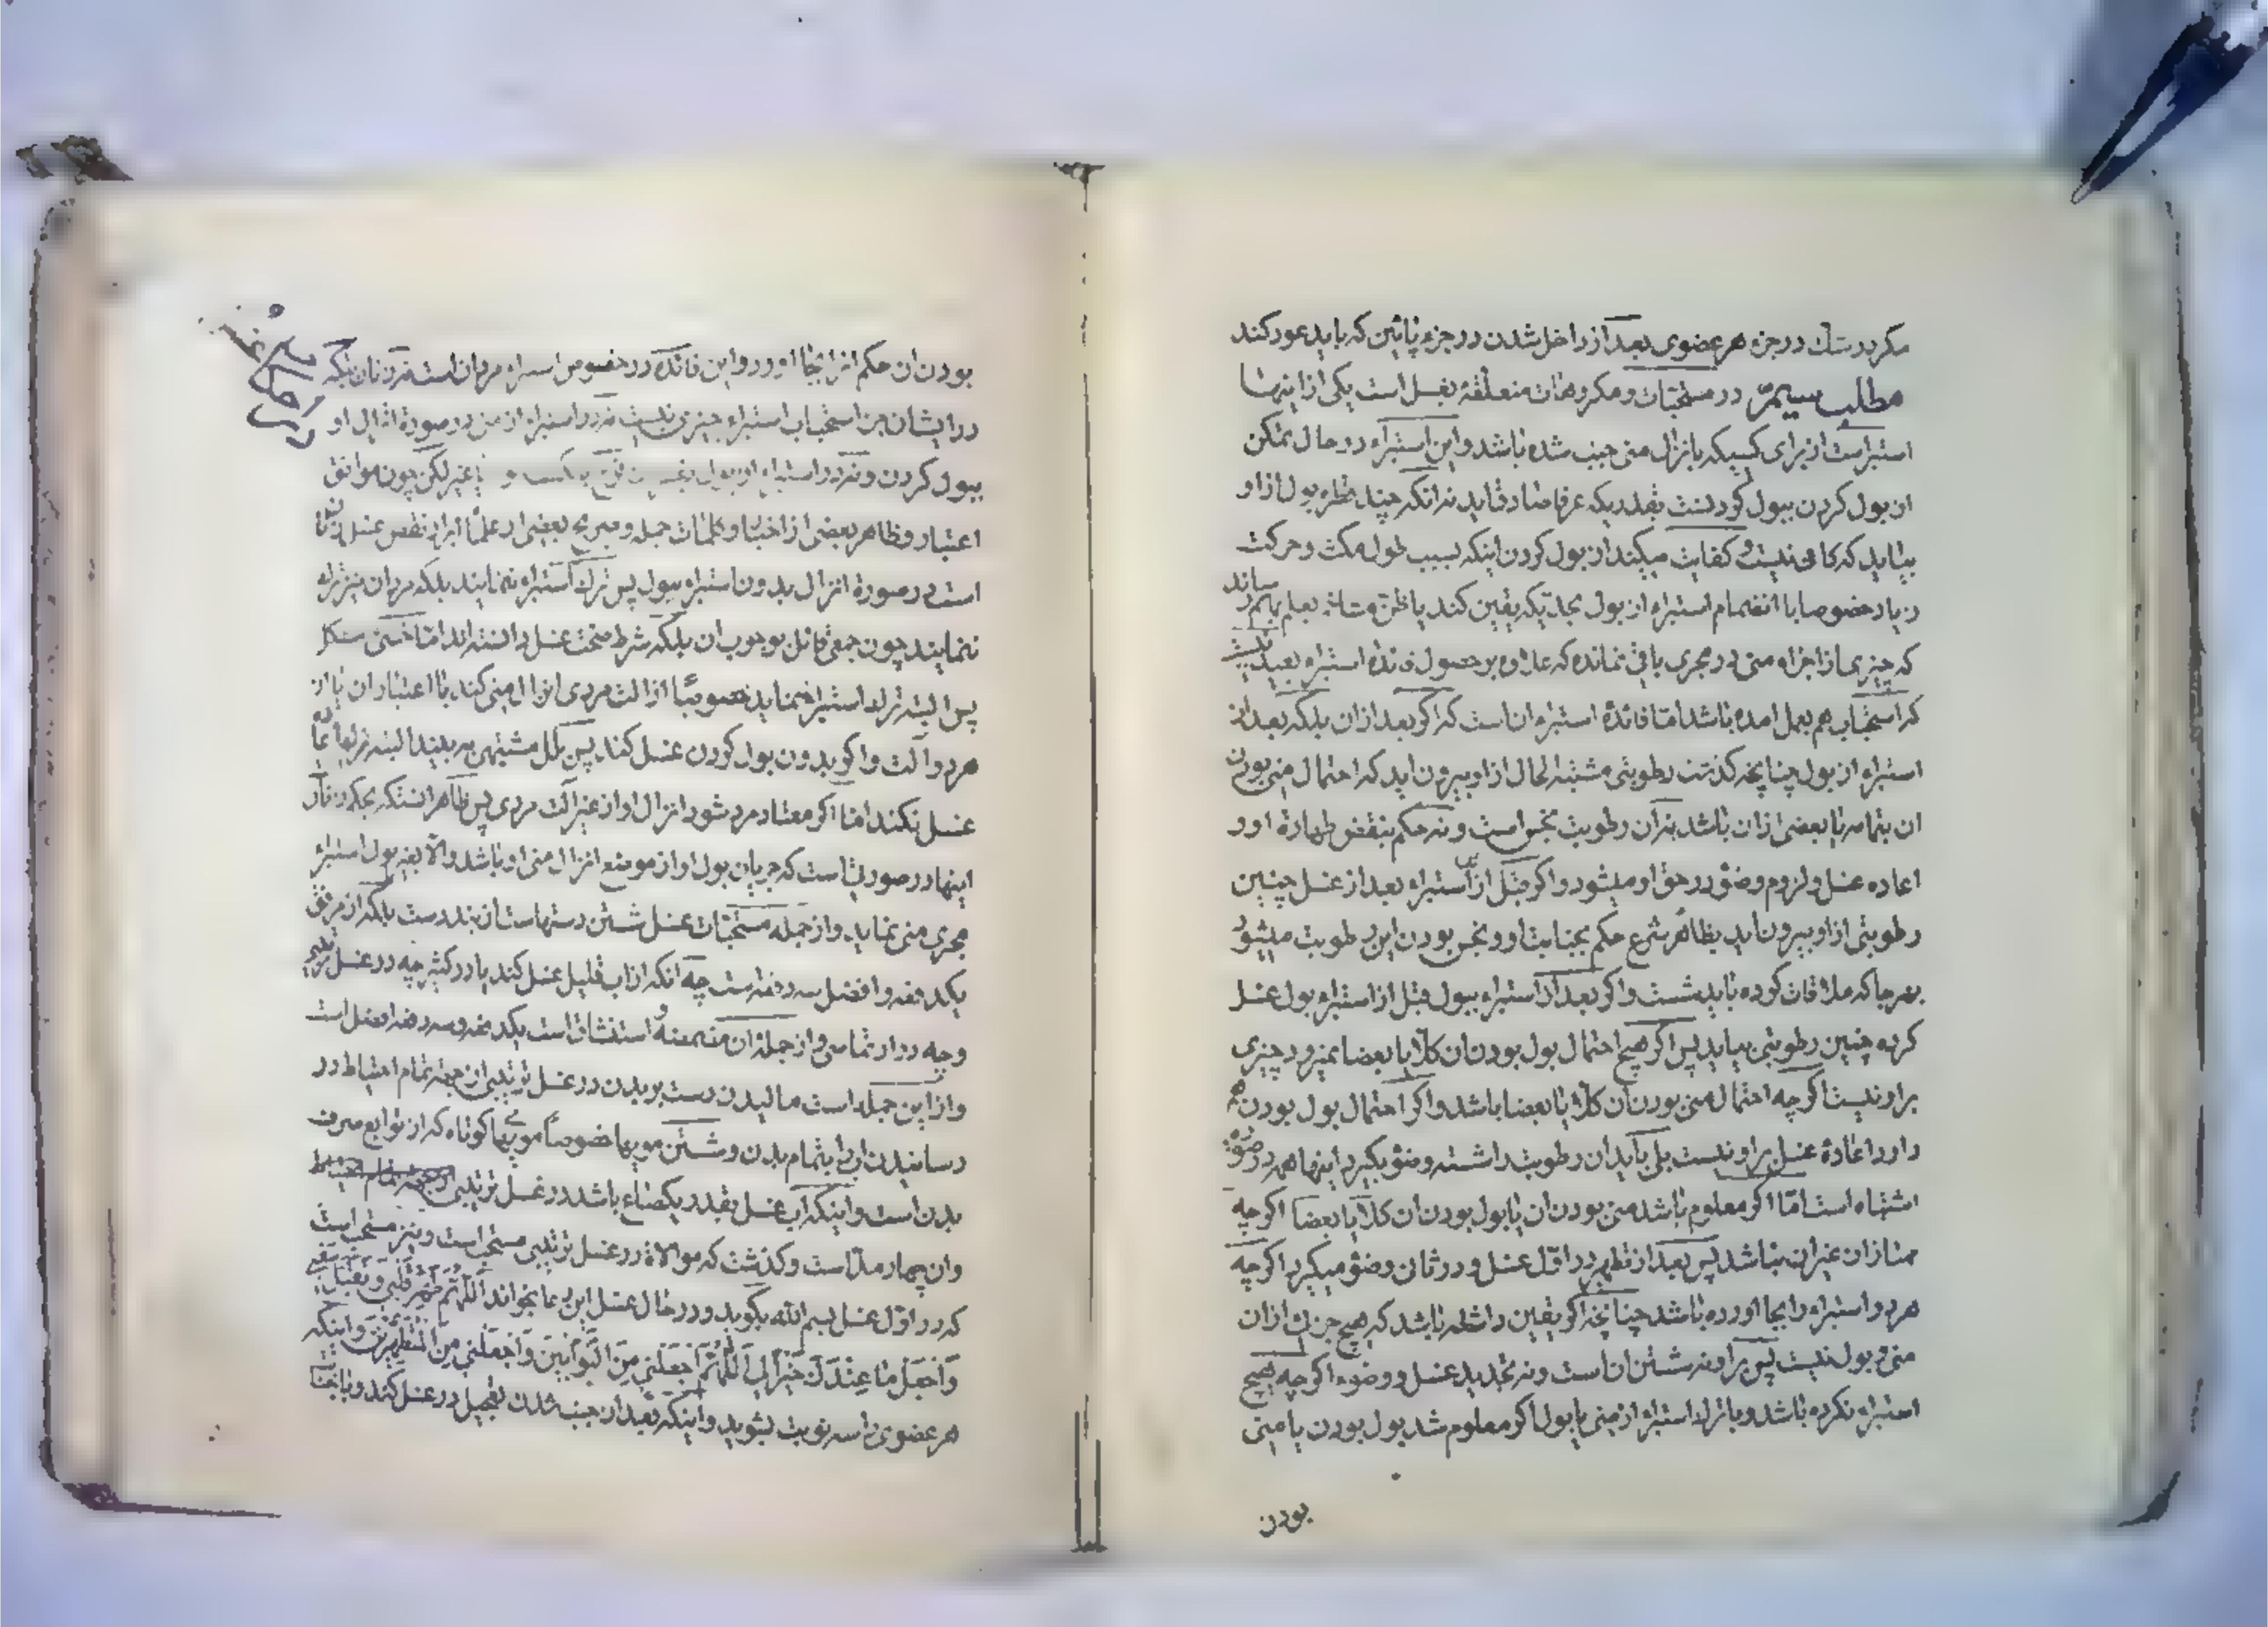 مکر در شك در جزء هر عضوی بعد از داخل شدن در جزء پائین که باید عود کند
مطلب سیم در مستحبات و مکروهات متعلقهٔ بغسل است یکی از اینها
استبراست از برای کسیکه بانزال منی جنب شده باشد و این استبراء در حال تمکن
از بول کردن ببول کردنست بقدریکه عرفا صادق آید نه انکه چند قطره بول از او
بیاید که کافی نیست و کفایت میکند از بول کردن اینکه بسبب طول مکث و حرکت
زیاد خصوصا با انضمام استبراء از بول بحدیکه یقین کند یا ظن متاخم بعلم بهم رساند
که چیزی از اجزاء منی در مجری باقی نمانده که علاوه بر حصول فائدهٔ استبراء بعید نیست
که استحباب هم بعمل امده باشد امّا فائدهٔ استبراء ان است که اکر بعد از ان بلکه بعد از
استبراء از بول چنانچه کذشت رطوبتی مشتبه الحال از او بیرون اید که احتمال منی بودن
ان بتمامه یا بعضی از ان باشد نه ان رطوبت نجس است و نه حکم بنقض طهارة او و
اعاده غسل و لزوم وضو در حق او میشود و اکر قبل از استبراء بعد از غسل چنین
رطوبتی از او بیرون اید بظاهر شرع حکم بجنابت او و نجس بودن این رطوبت میشود
بهر جا که ملاقات کرده باید شست و اکر بعد از استبراء ببول قبل از استبراء بول غسل
کرده چنین رطوبتی بیاید پس اکر هیچ احتمال بول بودن ان کلا یا بعضا نمیرود چیزی
بر او نیست اکر چه احتمال منی بودن ان کلا یا بعضا باشد و اکر احتمال بول بودن هم
دارد اعادهٔ غسل بر او نیست بلی باید ان رطوبت را شسته وضو بکیرد اینها همه در صورة
اشتباه است امّا اکر معلوم باشد منی بودن ان یا بول بودن ان کلا یا بعضا اکر چه
ممتاز از غیر ان نباشد پس بعد از تطهیر در اوّل غسل و در ثانی وضو میکیرد اکر چه
هر دو استبراء را بجا اورده باشد چنانچه اکر یقین داشته باشد که هیچ جزئی از ان
منی و بول نیست پس بر او نه شستن ان است و نه تجدید غسل و وضوء اکر چه هیچ
استبراء نکرده باشد و با ترك استبراء از منی یا بول اکر معلوم شد بول بودن یا منی
بودن
بودن ان حکم انرا بجا اورد و این فائده در خصوص استبراء مردان است نه زنان بلکه
در ایشان استحباب استبراء چیزی نیست نه در استبراء از منی در صورة انزال او
ببول کردن و نه در استبراء از بول لکن چون موافق
اعتبار و ظاهر بعضی از اخبار و کلمات جمله و صریح بعضی از علما
است در صورة انزال بدون استبراء ببول پس ترك استبراء ننمایند بلکه مردان نیز ترك
ننمایند چون جمعی قائل بوجوب ان بلکه شرط صحت غسل دانسته اند امّا خنثی مشکل
پس البته ترك استبراء ننماید خصوصًا از الت مردی انزال منی کند با اعتبار ان یا از
هر دو آلت و اکر بدون بول کردن غسل کند پس بلل مشتبهی به بیند البته ترك اعادهٔ
غسل نکند امّا اکر معتاد مرد شود انزال او از غیر آلت مردی پس ظاهر انستکه
اینها در صورتی است که جریان بول او از موضع انزال منی او باشد و الّا
مجری منی نماید و از جمله مستحبات غسل شستن دستهاست از بند دست بلکه از مرفق
یکدفعه و افضل سه دفعه است چه انکه از اب قلیل غسل کند یا در کثیر چه در غسل ترتیبی
و چه در ارتماسی و از جملهٔ ان مضمضه و استنشاق است یکدفعه و سه دفعه افضل است
و از این جمله است مالیدن دست بر بدن در غسل ترتیبی از جهة تمام احتیاط در
رسانیدن اب بتمام بدن و شستن مویها خصوصاً مویهای کوتاه که از توابع صرف
بدن است و اینکه اب غسل بقدر یکصاع باشد در غسل ترتیبی
وان چهار مدّ است و کذشت که موالاة در غسل ترتیبی مستحب است و نیز مستحب است
که در اوّل غسل بسم الله بکوید و در حال غسل این دعا بخواند اَللّٰهُمَّ طَهِّرْ قَلْبِی وَ تَقَبَّلْ سَعْیِی
وَ اجْعَلْ مَا عِنْدَكَ خَیْرًا لِی اَللّٰهُمَّ اجْعَلْنِی مِنَ التَّوَّابِینَ وَ اجْعَلْنِی مِنَ الْمُتَطَهِّرِینَ و اینکه
هر عضوی را سه نوبت بشوید و اینکه بعد از جنب شدن تعجیل در غسل کند